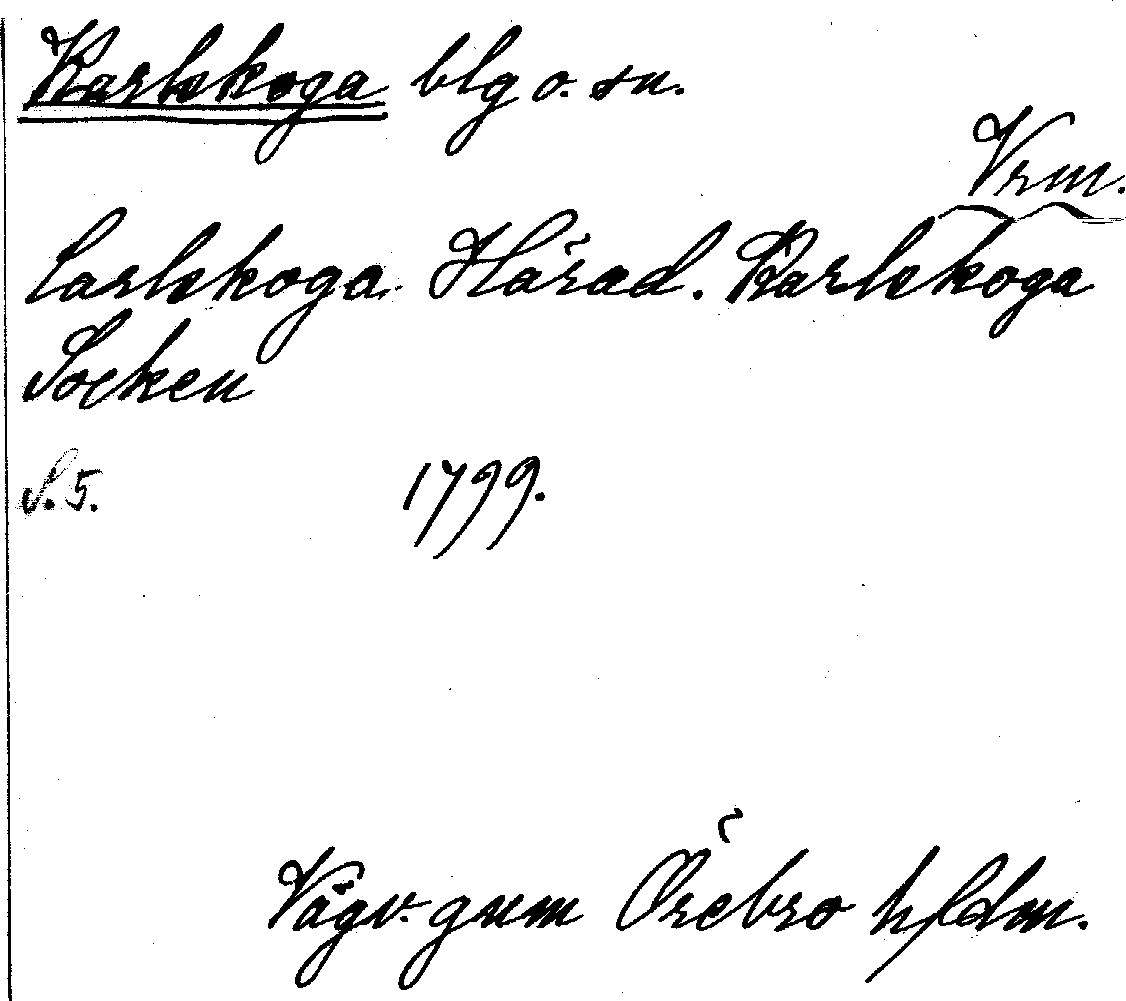 Karlskoga blg o. sn.
Vrm.
Carlskoga Härad. Karlskoga
Socken
S. 5. 1799.
Vägv. gnm Örebro hfdm.